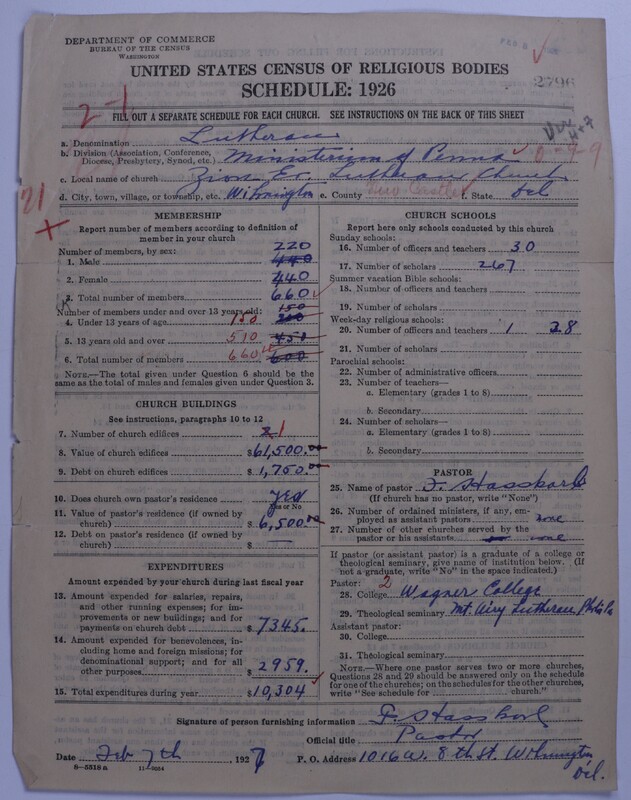 DEPARTMENT OF COMMERCE
BUREAU OF THE CENSUS
WASHINGTON
UNITED STATES CENSUS OF RELIGIOUS BODIES
SCHEDULE: 1926
2796
2-1
FILL OUT A SEPARATE SCHEDULE FOR EACH CHURCH. SEE INSTRUCTIONS ON THE BACK OF THIS SHEET
a. Denomination Lutheran
b. Division (Association, Conference, Diocese, Presbytery, Synod, etc.) Ministerium of Penna 0-7-9
c. Local name of church Zion Ev. Lutheran Church
d. City, town, village, or township, etc. Wilmington e. County New Castle f. State Del
21
MEMBERSHIP
Report number of members according to definition of member in your church
Number of members, by sex: 220
1. Male 440
2. Female 440
3. Total number of members 660
Number of members under and over 13 years old: 150
4. Under 13 years of age 150
5. 13 years old and over 510 450
6. Total number of members 660 600
NOTE.—The total given under Question 6 should be the same as the total of males and females given under Question 3.
CHURCH BUILDINGS
See instructions, paragraphs 10 to 12
7. Number of church edifices 2 1
8. Value of church edifices $61,500.00
9. Debt on church edifices $1,750.00
10. Does church own pastor's residence yes
Yes or No
11. Value of pastor's residence (if owned by church) $6,500.00
12. Debt on pastor's residence (if owned by church) $ —
EXPENDITURES
Amount expended by your church during last fiscal year
13. Amount expended for salaries, repairs, and other running expenses; for improvements or new buildings; and for payments on church debt $7345.
14. Amount expended for benevolences, including home and foreign missions; for denominational support; and for all other purposes $2959.
15. Total expenditures during year $10,304
CHURCH SCHOOLS
Report here only schools conducted by this church
Sunday schools:
16. Number of officers and teachers 30
17. Number of scholars 267
Summer vacation Bible schools:
18. Number of officers and teachers
19. Number of scholars
Week-day religious schools:
20. Number of officers and teachers 1 38
21. Number of scholars
Parochial schools:
22. Number of administrative officers
23. Number of teachers—
a. Elementary (grades 1 to 8)
b. Secondary
24. Number of scholars—
a. Elementary (grades 1 to 8)
b. Secondary
PASTOR
25. Name of pastor F. Hasskarl
(If church has no pastor, write "None")
26. Number of ordained ministers, if any, employed as assistant pastors none
27. Number of other churches served by the pastor or his assistants none
If pastor (or assistant pastor) is a graduate of a college or theological seminary, give name of institution below. (If not a graduate, write "No" in the space indicated.)
Pastor: 2
28. College Wagner College
29. Theological seminary Mt. Airy Lutheran Phila Pa
Assistant pastor:
30. College
31. Theological seminary
NOTE.—Where one pastor serves two or more churches, Questions 28 and 29 should be answered only on the schedule for one of the churches; on the schedules for the other churches, write "See schedule for church."
Signature of person furnishing information F. Hasskarl
Official title Pastor
Date Feb 7th, 1927 P. O. Address 1016 W. 8th St. Wilmington Del.
8—5518 a 11—9054